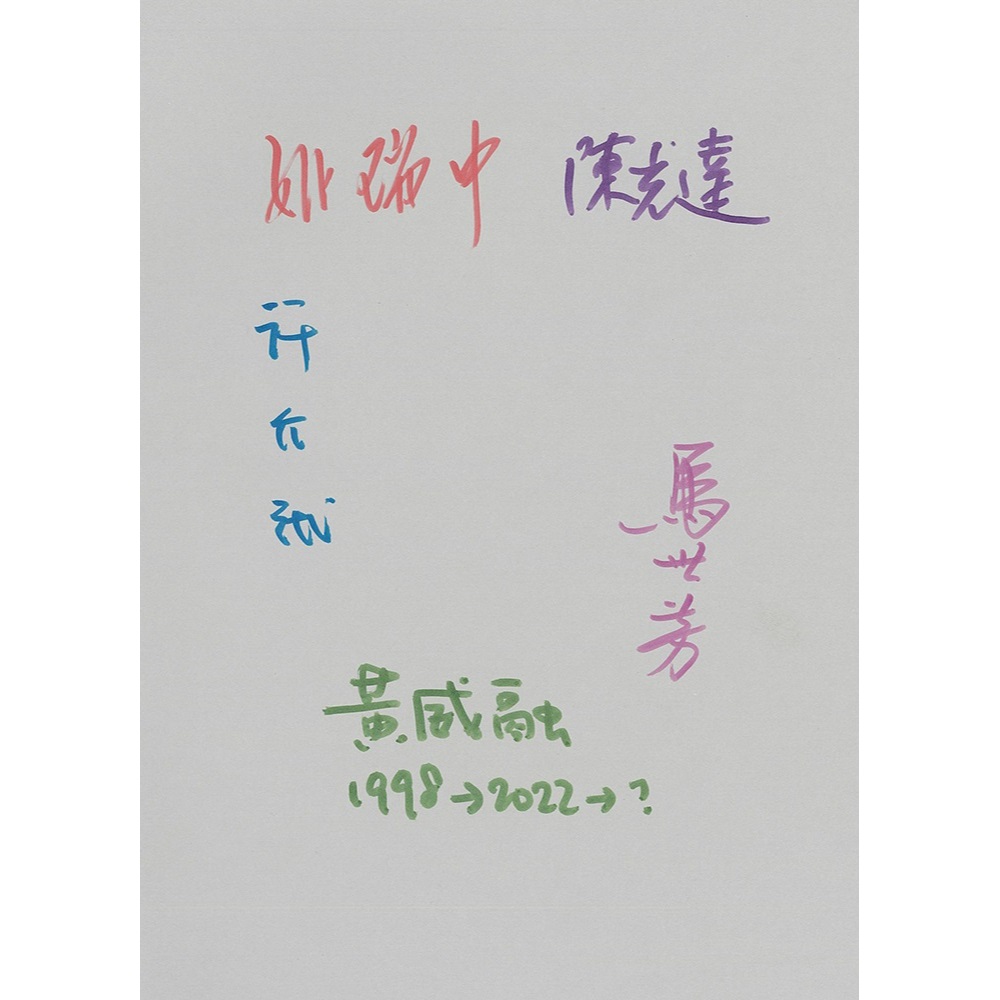 姚瑞中
陳光達
許允斌
馬世芳
黃威融
1998→2022→?